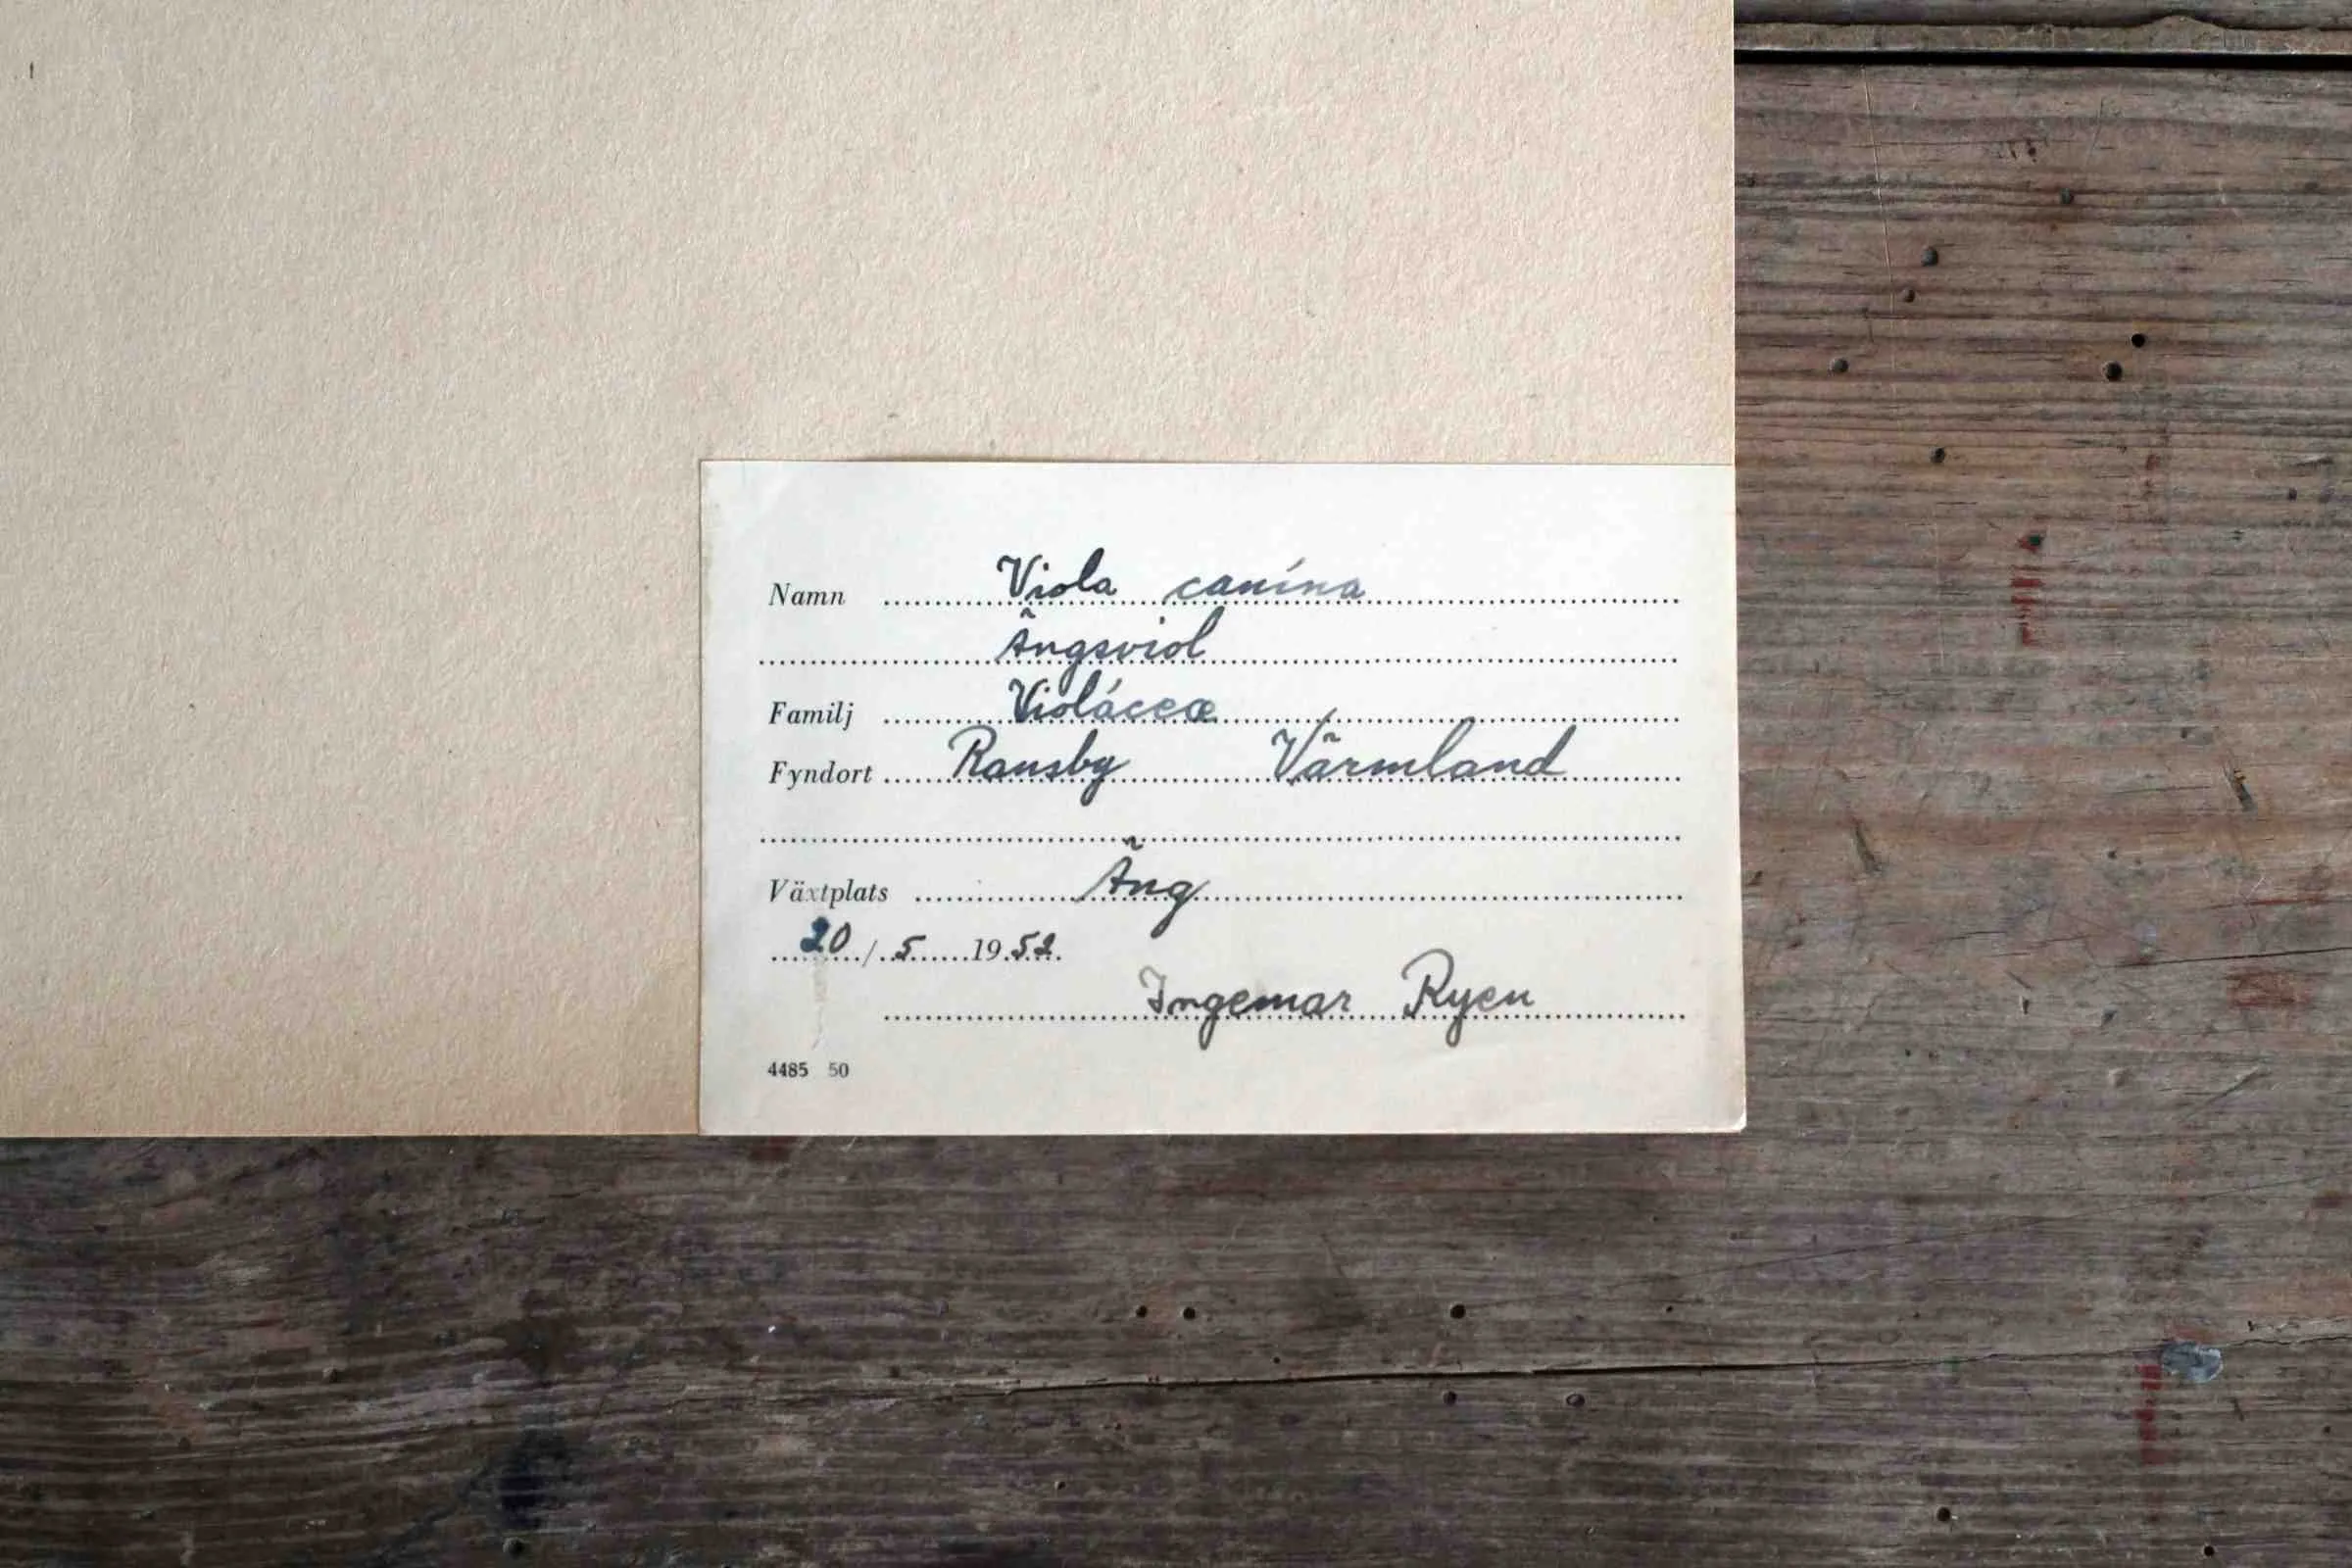 Namn Viola canína
Ängsviol
Familj Violáceæ
Fyndort Ransby Värmland
Växtplats Äng
20/5 1952
Ingemar Ryen
4485 50